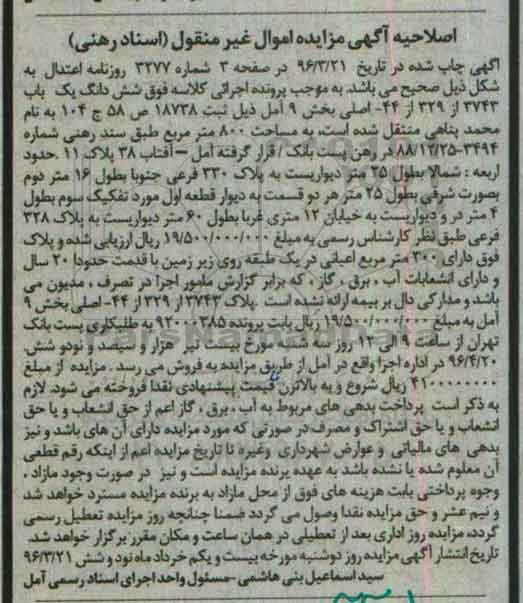 اصلاحیه آگهی مزایده اموال غیر منقول (اسناد رهنی)
آگهی چاپ شده در تاریخ ۹۶/۳/۲۱ در صفحه ۳ شماره ۳۲۷۷ روزنامه اعتدال به
شکل ذیل صحیح می باشد. به موجب پرونده اجرائی کلاسه فوق شش دانگ یک باب
۳۷۴۳ از ۳۲۹ از ۴۴- اصلی بخش ۹ آمل ذیل ثبت ۱۸۷۳۸ ص ۵۸ ج ۱۰۴ به نام
محمد پناهی منتقل شده است، به مساحت ۸۰۰ متر مربع طبق سند رهنی شماره
۸۸/۱۲/۲۵-۳۴۹۴ در رهن پست بانک / قرار گرفته آمل – آفتاب ۳۸ پلاک ۱۱ .حدود
اربعه : شمالا بطول ۲۵ متر دیواریست به پلاک ۳۳۰ فرعی جنوبا بطول ۱۶ متر دوم
بصورت شرقی بطول ۲۵ متر هر دو قسمت به دیوار قطعه اول مورد تفکیک سوم بطول
۴ متر در و دیواریست به خیابان ۱۲ متری غربا بطول ۶۰ متر دیواریست به پلاک ۳۲۸
فرعی طبق نظر کارشناس رسمی به مبلغ ۱۹/۵۰۰/۰۰۰/۰۰۰ ریال ارزیابی شده و پلاک
فوق دارای ۲۰۰ متر مربع اعیانی در یک طبقه روی زیر زمین با قدمت حدودا ۲۰ سال
و دارای انشعابات آب ، برق ، گاز ، که برابر گزارش مامور اجرا در تصرف ، مدیون می
باشد و مدارکی دال بر بیمه ارائه نشده است .پلاک ۳۷۴۳ از ۳۲۹ از ۴۴- اصلی بخش ۹
آمل به مبلغ ۱۹/۵۰۰/۰۰۰/۰۰۰ ریال بابت پرونده ۹۲۰۰۰۳۸۵ به طلبکاری پست بانک
تهران از ساعت ۹ الی ۱۲ روز سه شنبه مورخ بیست تیر هزار و سیصد و نودو شش.
۹۶/۴/۲۰ در اداره اجرا واقع در آمل از طریق مزایده به فروش می رسد . مزایده از مبلغ
۴۱۰۰۰۰۰۰۰۰ ریال شروع و به بالاترین قیمت پیشنهادی نقدا فروخته می شود. لازم
به ذکر است پرداخت بدهی های مربوط به آب ، برق ، گاز اعم از حق انشعاب و یا حق
انشعاب و یا حق اشتراک و مصرف در صورتی که مورد مزایده دارای آن های باشد و نیز
بدهی های مالیاتی و عوارض شهرداری وغیره تا تاریخ مزایده اعم از اینکه رقم قطعی
آن معلوم شده یا نشده باشد به عهده برنده مزایده است و نیز در صورت وجود مازاد ،
وجوه پرداختی بابت هزینه های فوق از محل مازاد به برنده مزایده مسترد خواهد شد
و نیم عشر و حق مزایده نقدا وصول می گردد ضمنا چنانچه روز مزایده تعطیل رسمی
گردد، مزایده روز اداری بعد از تعطیلی در همان ساعت و مکان مقرر برگزار خواهد شد.
تاریخ انتشار آگهی مزایده روز دوشنبه مورخه بیست و یکم خرداد ماه نود و شش ۹۶/۳/۲۱
سید اسماعیل بنی هاشمی-مسئول واحد اجرای اسناد رسمی آمل